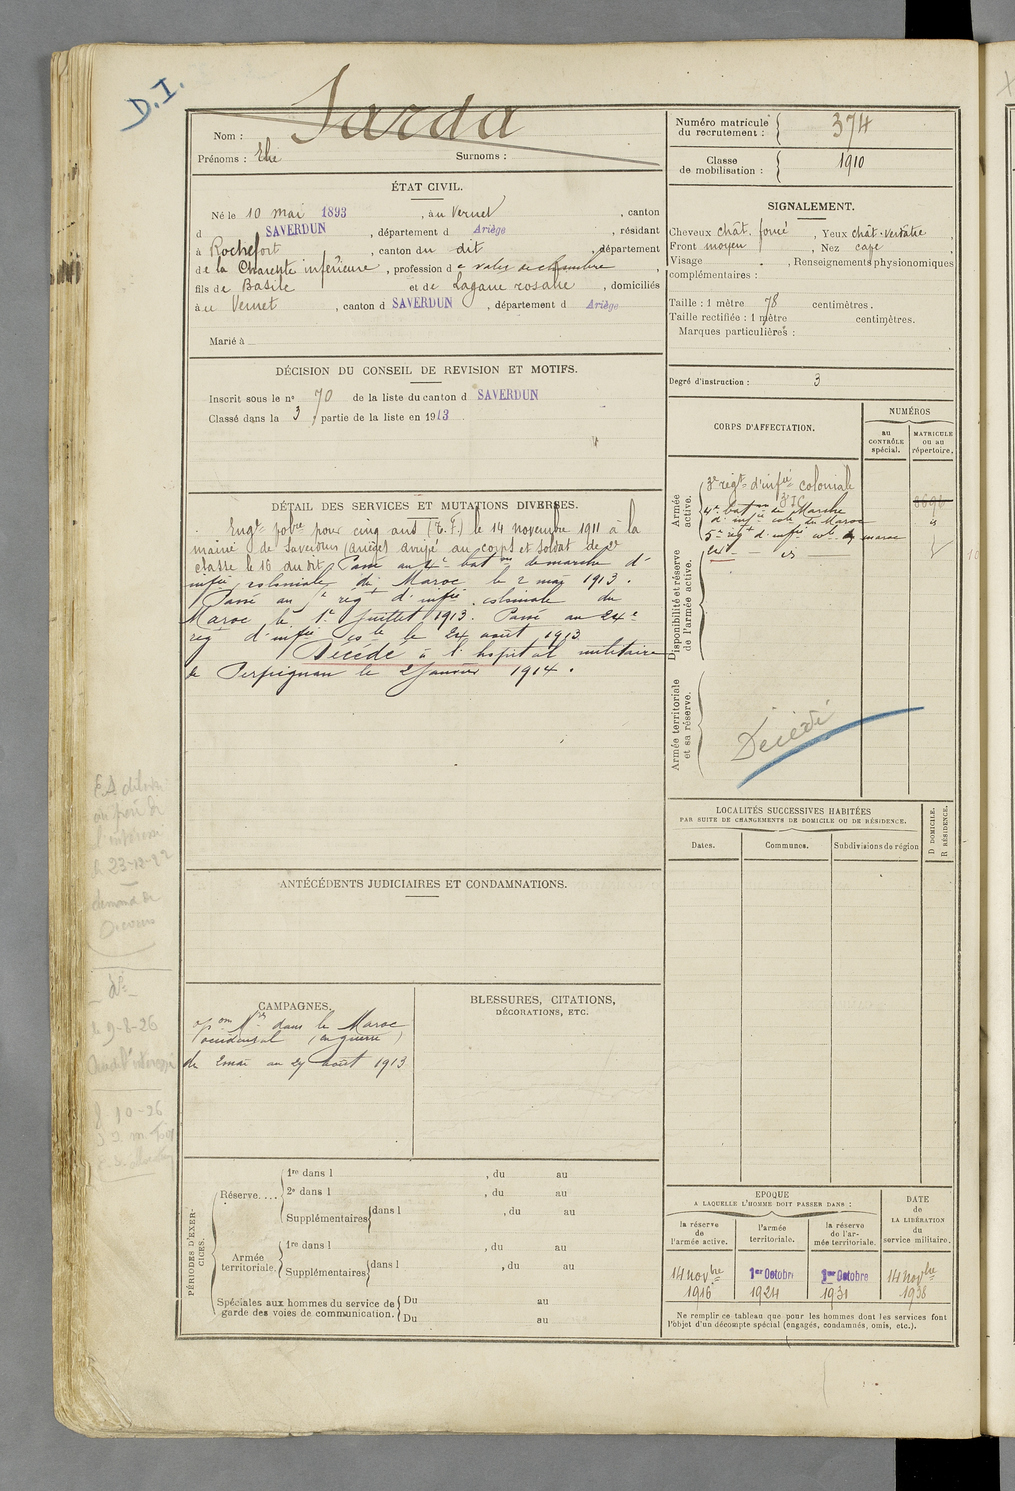 D.I.
Nom : Sarda
Prénoms : Elie Surnoms :
Numéro matricule du recrutement : 374
Classe de mobilisation : 1910
ÉTAT CIVIL.
Né le 10 mai 1893 , à u Vernet , canton
d SAVERDUN , département d Ariège , résidant
à Rochefort , canton du dit , département
de la Charente inférieure , profession de valet de chambre ,
fils de Basile et de Lagane rosalie , domiciliés
à u Vernet , canton d SAVERDUN , département d Ariège
Marié à
SIGNALEMENT.
Cheveux chât. foncé , Yeux chât. verdâtre
Front moyen , Nez cave
Visage , Renseignements physionomiques
complémentaires :
Taille : 1 mètre 78 centimètres.
Taille rectifiée : 1 mètre centimètres.
Marques particulières :
Degré d'instruction : 3
DÉCISION DU CONSEIL DE REVISION ET MOTIFS.
Inscrit sous le n° 70 de la liste du canton d SAVERDUN
Classé dans la 3 partie de la liste en 1913.
CORPS D'AFFECTATION.
NUMÉROS
au CONTRÔLE spécial.
MATRICULE ou au répertoire.
Armée active.
3e regt d'infie coloniale
3e I C 8696
4e baton de Marche
d'infie cole du Maroc "
5e regt d'infie cole du maroc
24e — d° —
Disponibilité et réserve de l'armée active.
Armée territoriale et sa réserve.
Décédé
DÉTAIL DES SERVICES ET MUTATIONS DIVERSES.
Engé volre pour cinq ans (E.F.) le 14 novembre 1911 à la
mairie de Saverdun (Ariège) arrivé au corps et soldat de 2e
classe le 16 du dit. Passé au 4e baton de marche d'
infie coloniale du Maroc le 2 mai 1913.
Passé au regt d'infie coloniale du
Maroc le 1er Juillet 1913. Passé au 24e
regt d'infie cole le 24 août 1913
Décédé à l'hopital militaire
de Perpignan le 2 Janvier 1914.
LOCALITÉS SUCCESSIVES HABITÉES
PAR SUITE DE CHANGEMENTS DE DOMICILE OU DE RÉSIDENCE.
Dates. Communes. Subdivisions de région
D DOMICILE. R RÉSIDENCE.
ANTÉCÉDENTS JUDICIAIRES ET CONDAMNATIONS.
CAMPAGNES.
opons Mres dans le Maroc
occidental (en guerre)
du 2 mai au 29 août 1913
BLESSURES, CITATIONS,
DÉCORATIONS, ETC.
le 23-12-22
demande de
d°
le 9-8-26
10-26
PÉRIODES D'EXERCICES.
Réserve....
1re dans l , du au
2e dans l , du au
Supplémentaires dans l , du au
Armée territoriale.
1re dans l , du au
Supplémentaires dans l , du au
Spéciales aux hommes du service de garde des voies de communication.
Du au
Du au
EPOQUE
A LAQUELLE L'HOMME DOIT PASSER DANS :
la réserve de l'armée active.
l'armée territoriale.
la réserve de l'armée territoriale.
DATE de LA LIBÉRATION du service militaire.
14 novbre 1916
1er Octobre 1924
1er Octobre 1931
14 novbre 1938
Ne remplir ce tableau que pour les hommes dont les services font
l'objet d'un décompte spécial (engagés, condamnés, omis, etc.).